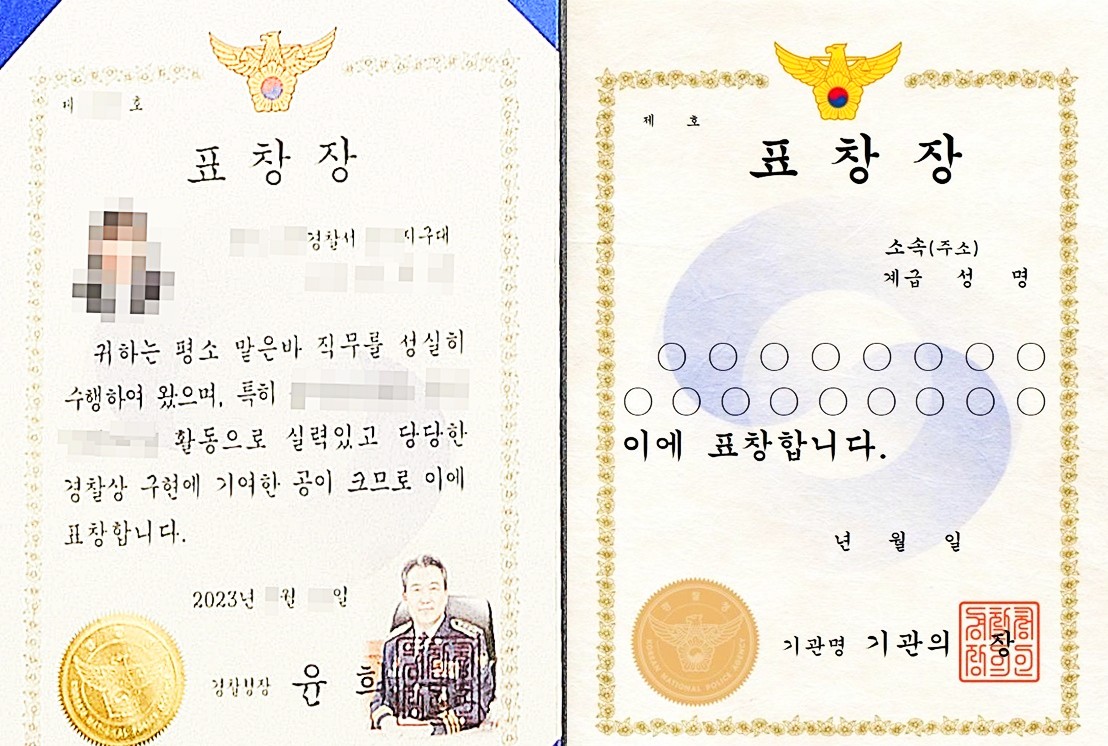 제 호
표 창 장
경찰서 지구대
귀하는 평소 맡은바 직무를 성실히
수행하여 왔으며, 특히
활동으로 실력있고 당당한
경찰상 구현에 기여한 공이 크므로 이에
표창합니다.
2023년 월 일
경찰청장 윤 희
제 호
표 창 장
소속(주소)
계급 성 명
○ ○ ○ ○ ○ ○ ○ ○
○ ○ ○ ○ ○ ○ ○ ○ ○
이에 표창합니다.
년 월 일
기관명 기관의 장
경찰청
KOREAN NATIONAL POLICE AGENCY